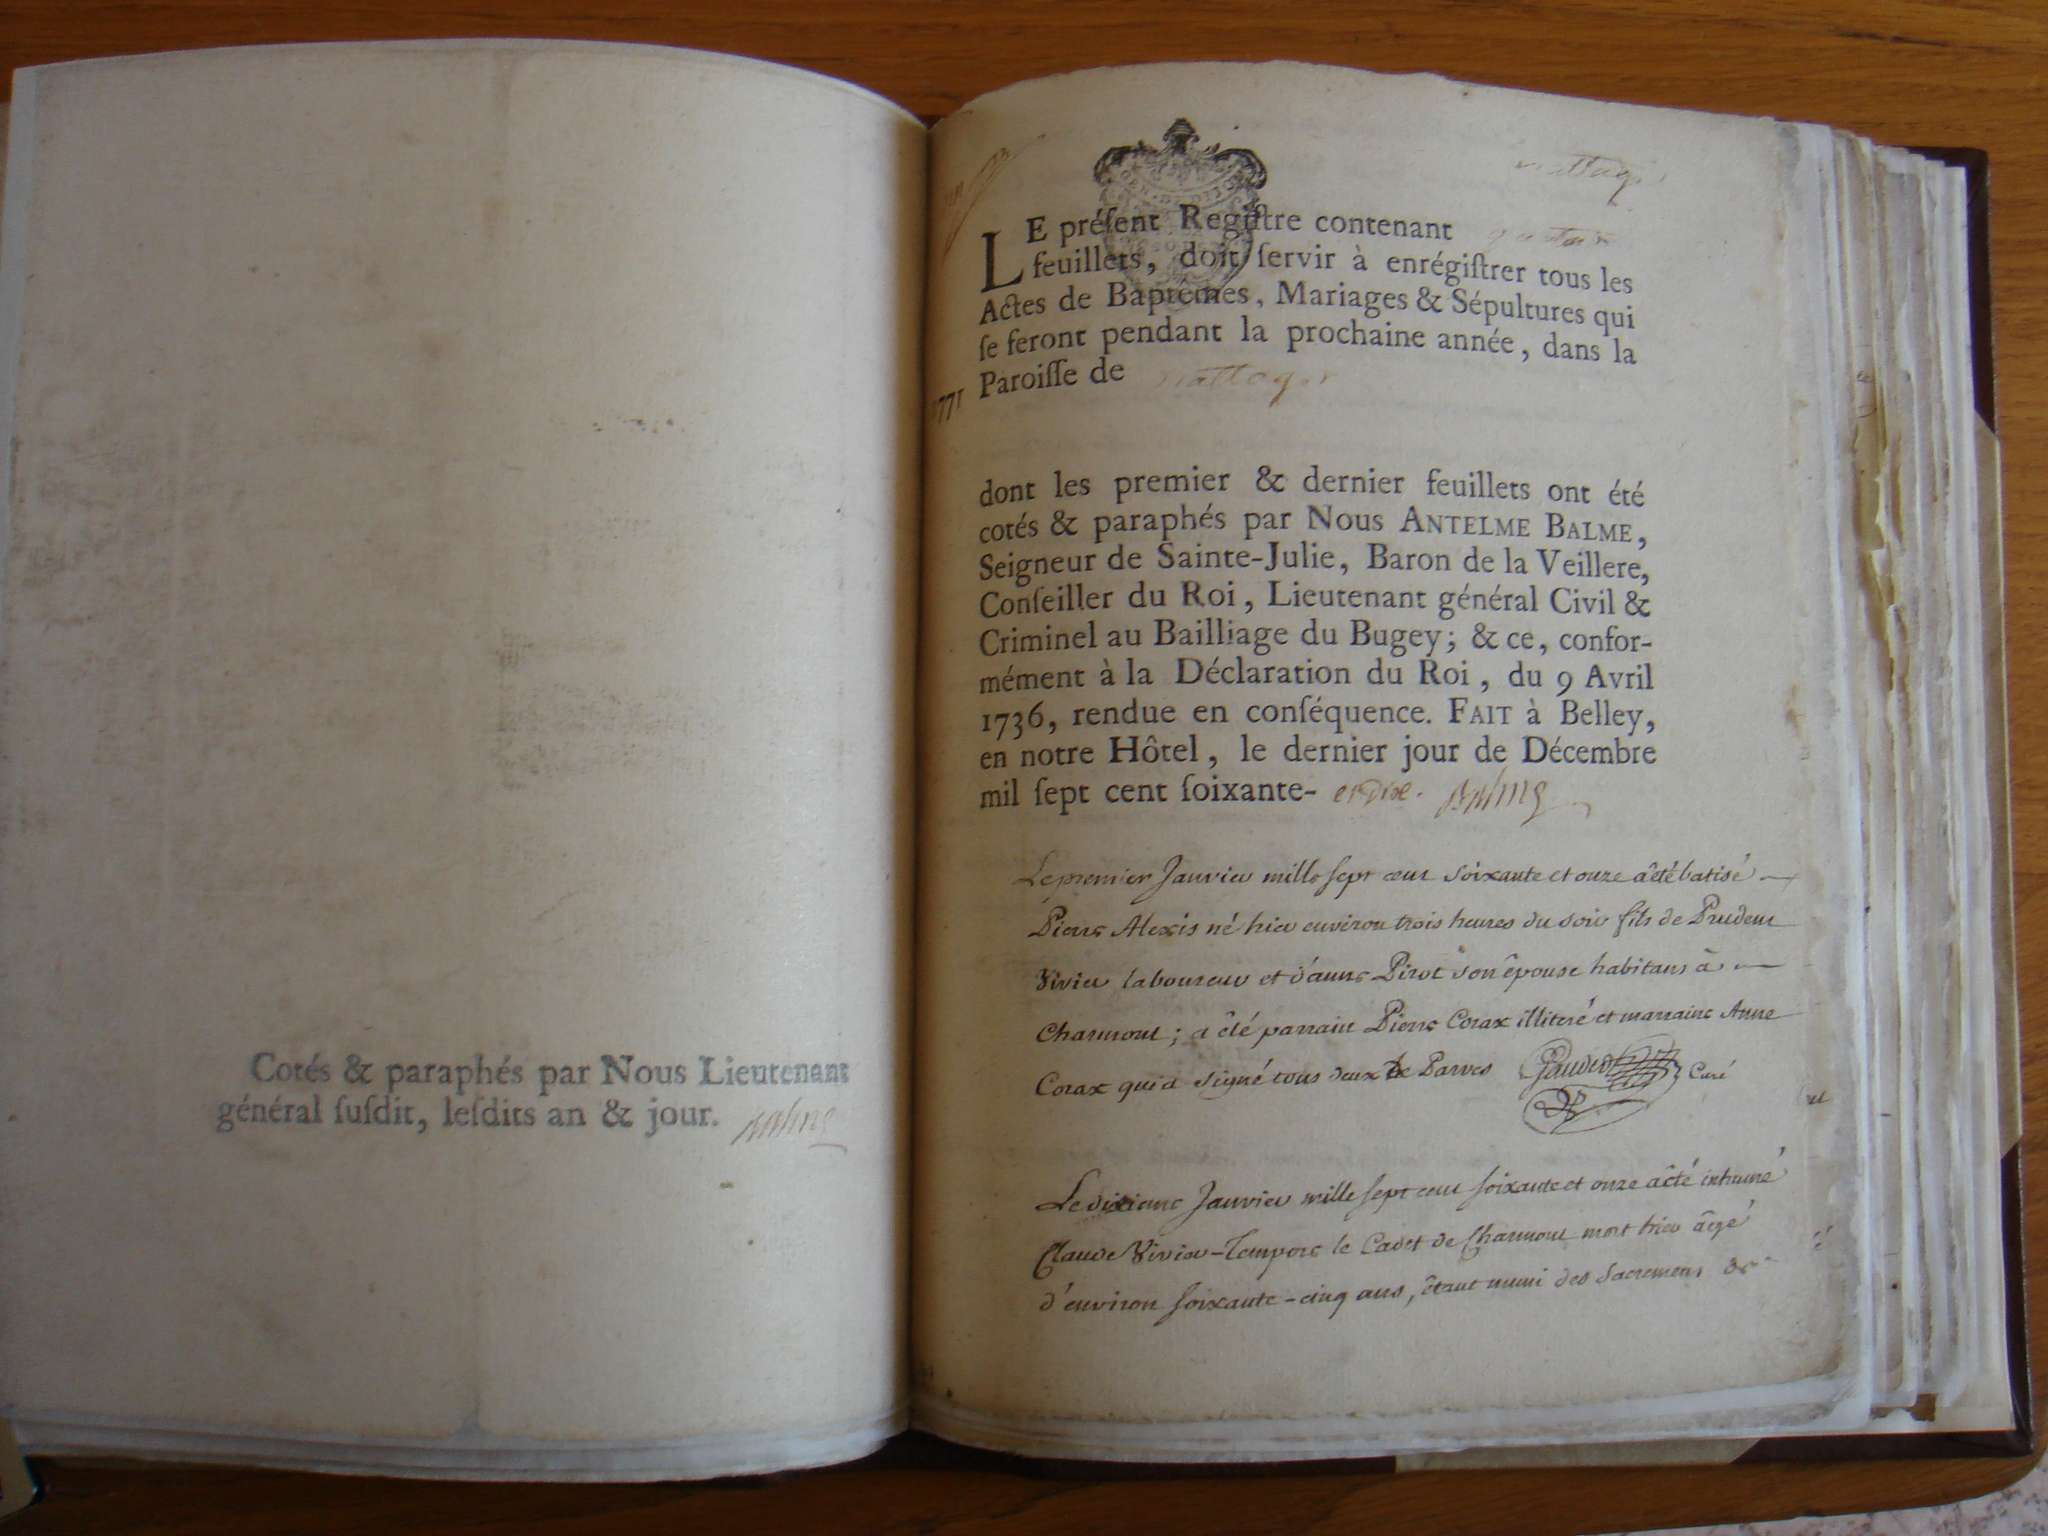 Cotés & paraphés par Nous Lieutenant
général ſuſdit, leſdits an & jour. Balme
LE préſent Regiſtre contenant
feuillets, doit ſervir à enrégiſtrer tous les
Actes de Baptêmes, Mariages & Sépultures qui
ſe feront pendant la prochaine année, dans la
Paroiſſe de
1771
dont les premier & dernier feuillets ont été
cotés & paraphés par Nous ANTELME BALME,
Seigneur de Sainte-Julie, Baron de la Veillere,
Conſeiller du Roi, Lieutenant général Civil &
Criminel au Bailliage du Bugey; & ce, confor-
mément à la Déclaration du Roi, du 9 Avril
1736, rendue en conſéquence. FAIT à Belley,
en notre Hôtel, le dernier jour de Décembre
mil ſept cent ſoixante- et dix. Balme
Le premier Janvier mille sept cent soixante et onze a êté batisé
Pierre Alexis né hier environ trois heures du soir fils de Prudent
Vivier laboureur et d'anne Pirot son êpouse habitans à
Charmont; a êté parrain Pierre Corax illiteré et marraine Anne
Corax qui a signé tous deux de Parves Gaudet Curé
Le dixieme Janvier mille sept cent soixante et onze a êté inhumé
Claude Vivier-Tempore le Cadet de Charmont mort hier âgé
d'environ soixante-cinq ans, êtant muni des Sacremens de